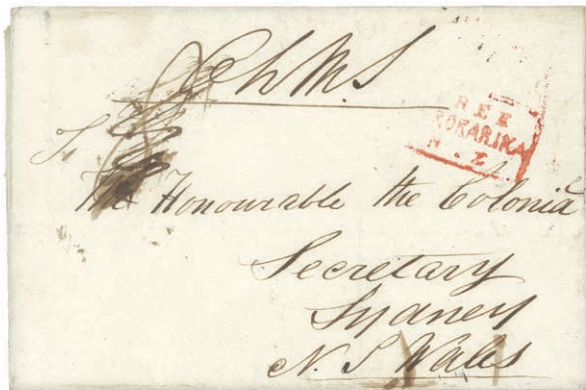 O h M. S
REE
KORARIKA
N. Z
To
The Honourable the Colonial
Secretary
Sydney
N. S Wales